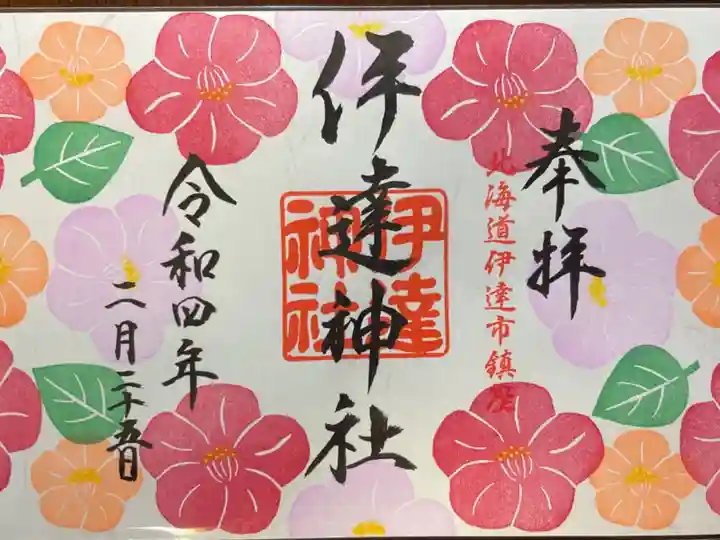 奉拝
北海道伊達市鎮座
伊達神社
伊達
神社
令和四年
二月二十五日